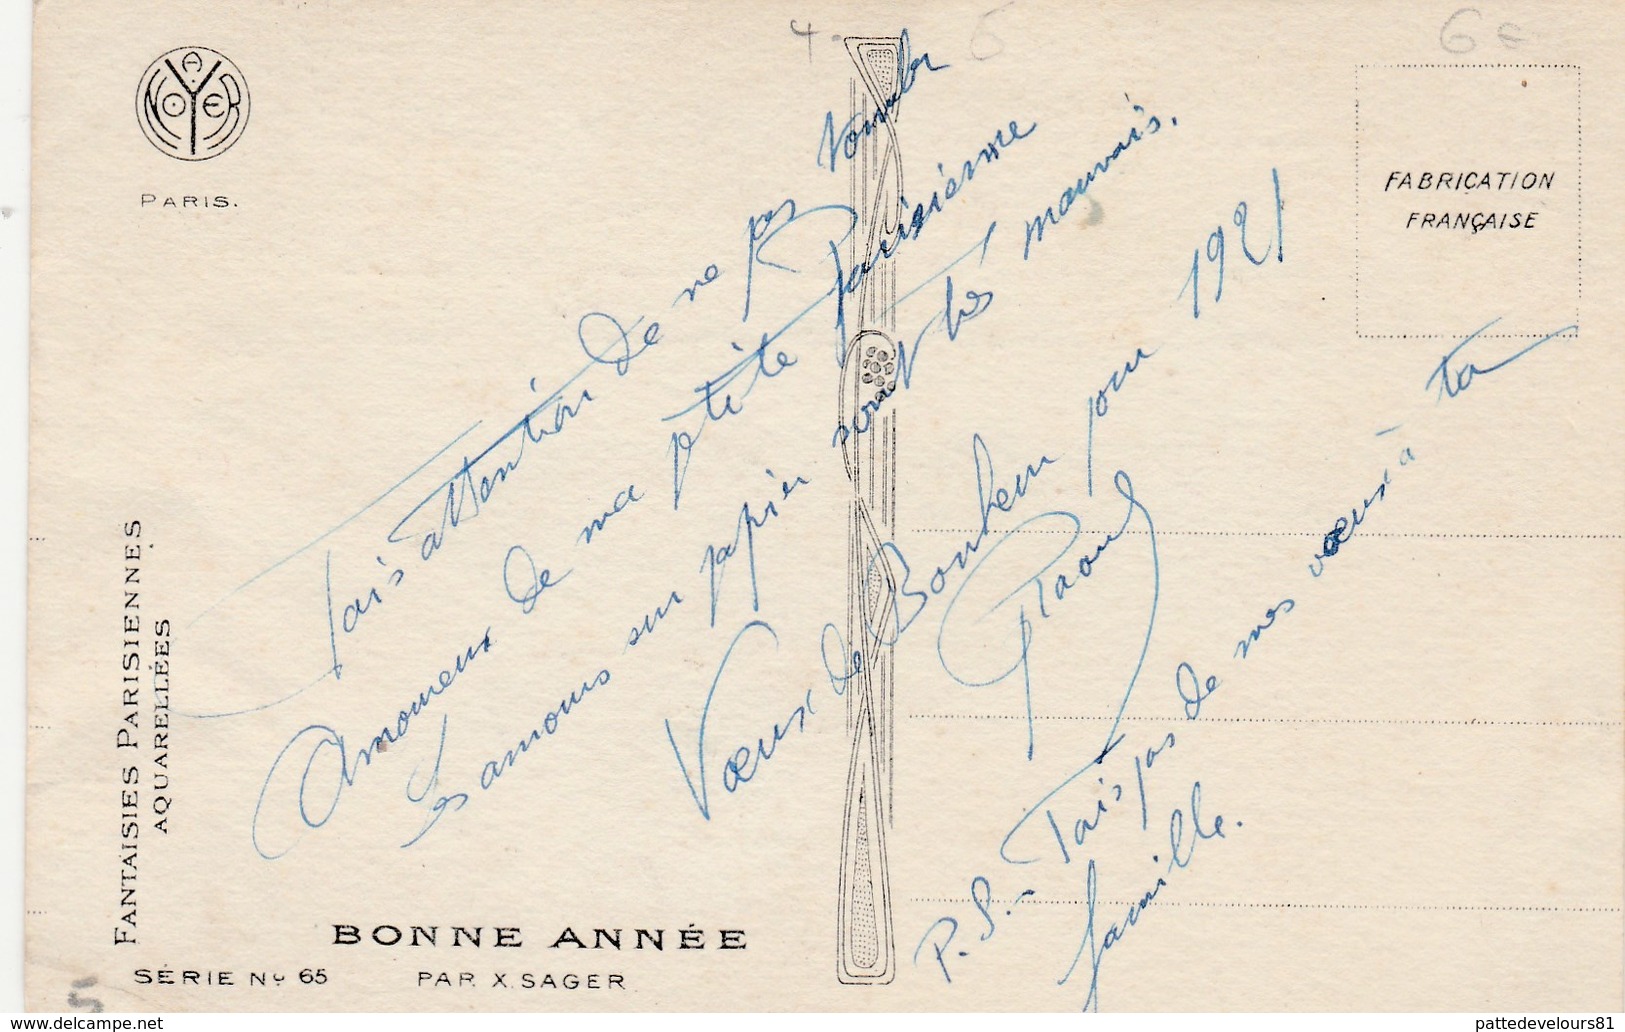 4.
6
6e
A. NOYER
PARIS.
FABRICATION
FRANÇAISE
Fais attention de ne pas tomber
Amoureux de ma petite parisienne
Les amours sur papier sont très mauvais.
Voeux de Bonheur pour 1921
Raoul
P.S. - Fais pas de mes voeux à ta
famille.
FANTAISIES PARISIENNES
AQUARELLÉES
BONNE ANNÉE
SÉRIE No 65
PAR X. SAGER
5
www.delcampe.net
pattedevelours81